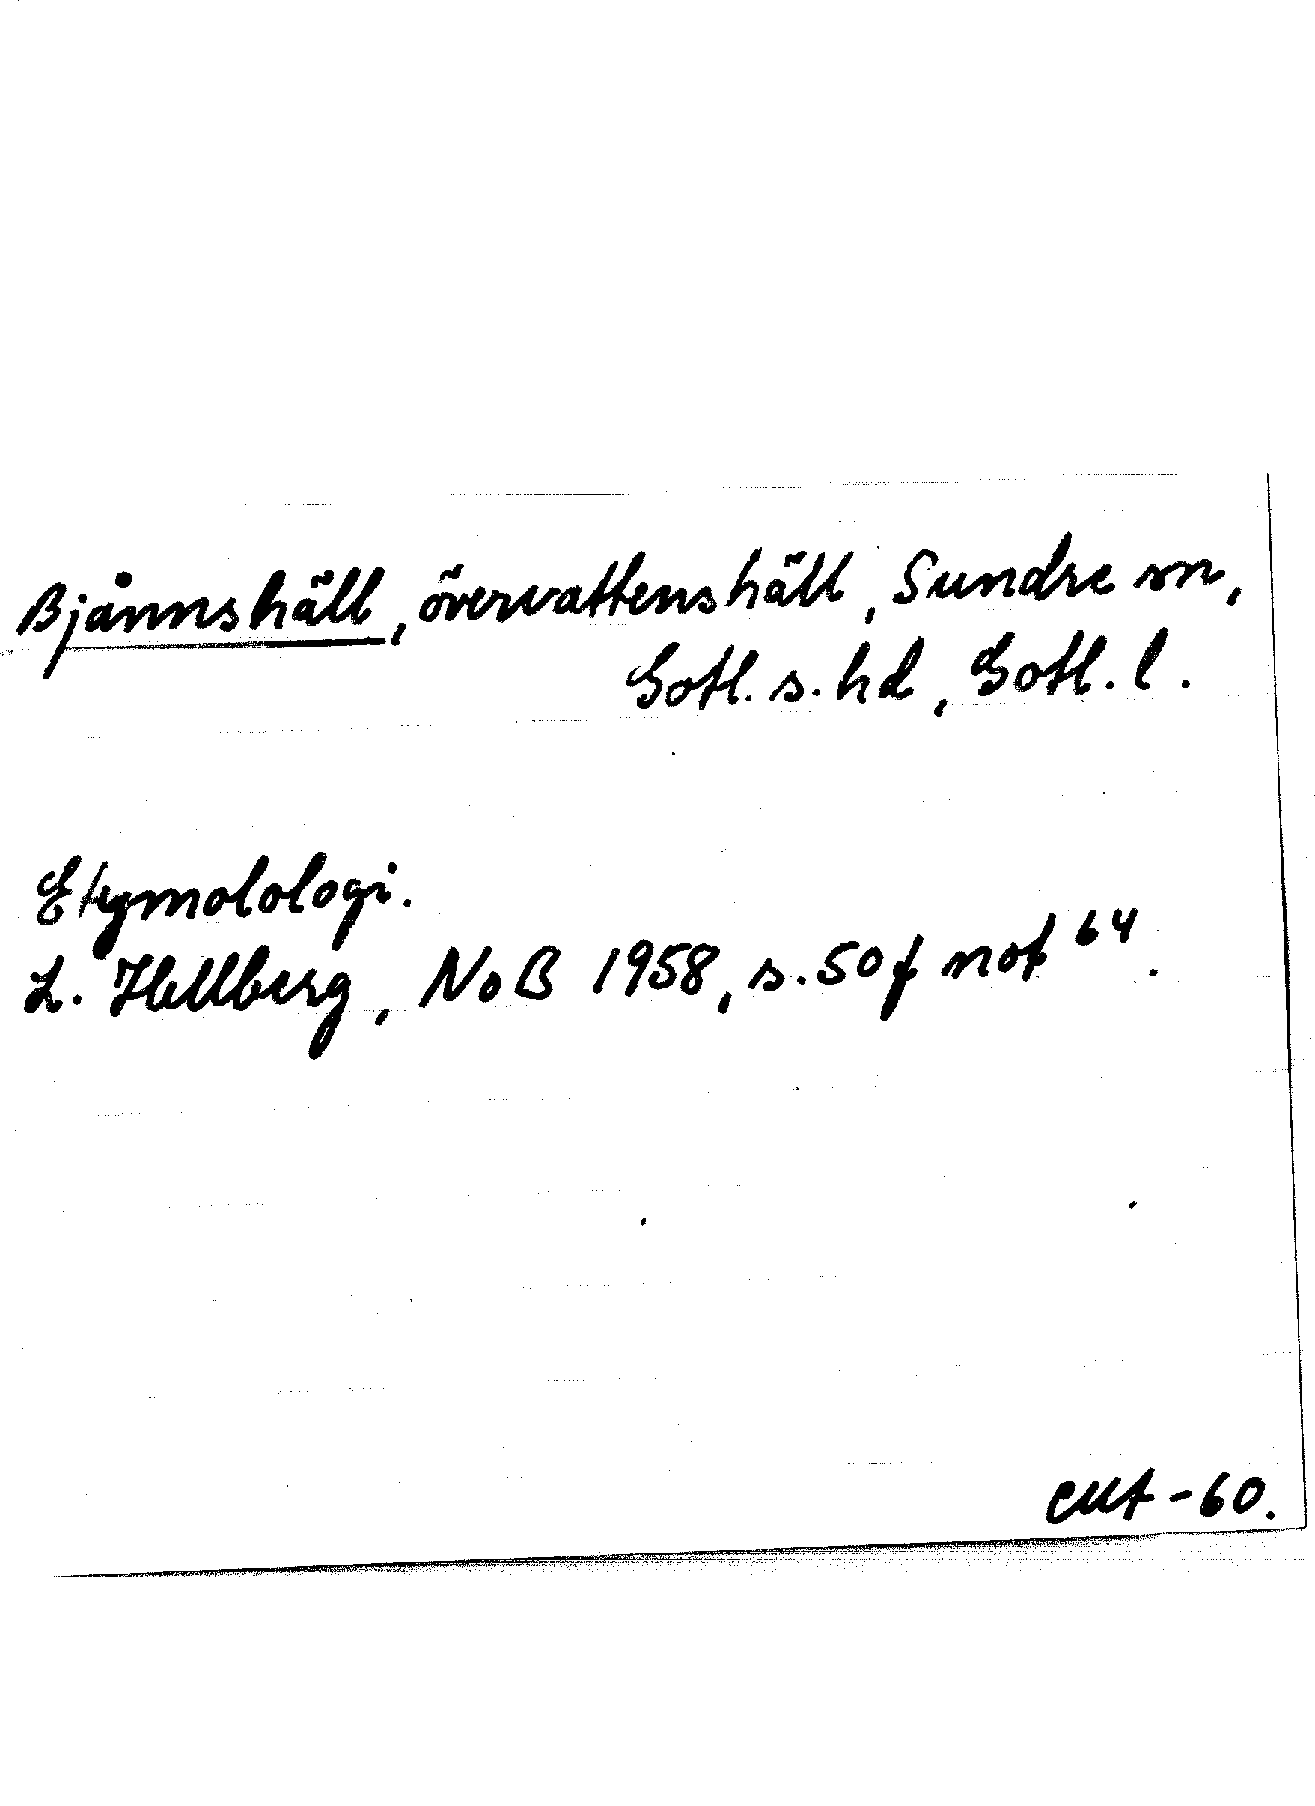 Bjånnshäll, övervattenshäll, Sundre sn,
Gotl. s. hd, Gotl. l.
Etymolologi.
L. Hellberg, NoB 1958, s. 50 f not 64.
-60.